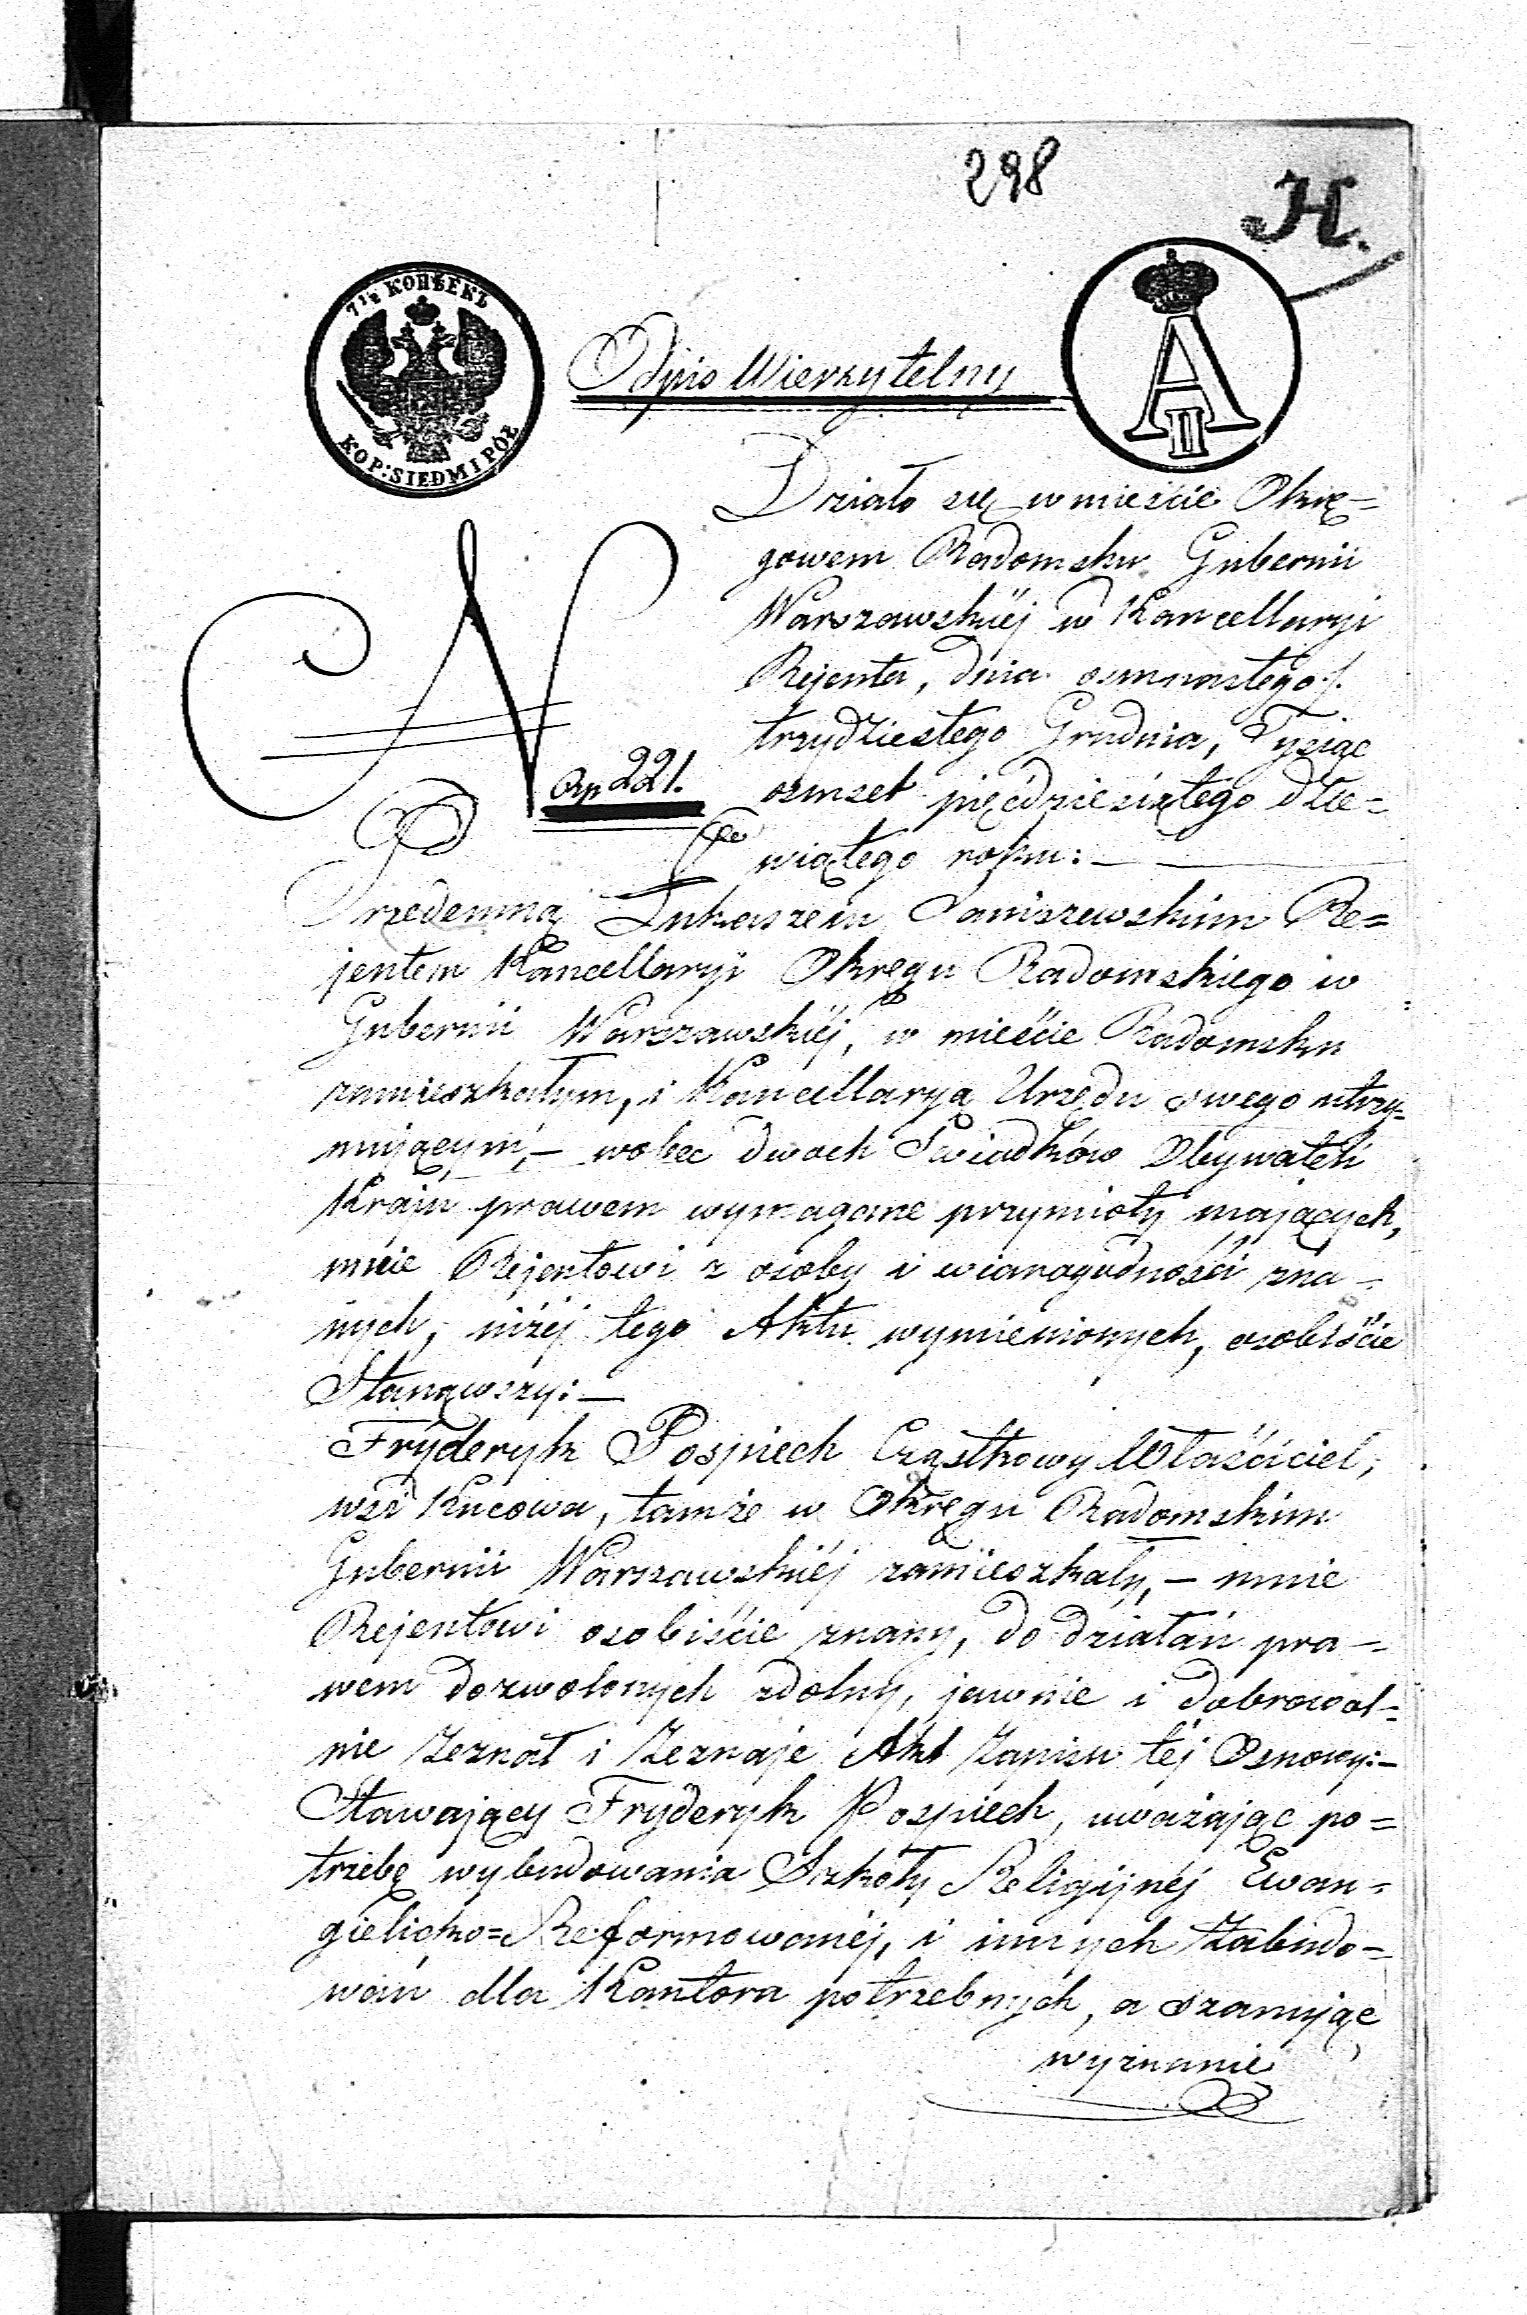 298
H.
7 1/2 КОПѢЕКЪ
KOP: SIEDM I PÓŁ
A II
Odpis Wierzytelny
N Rp 221.
Działo się w mieście Okrę=
gowem Radomsku Gubernii
Warszawskiéj w Kancellaryi
Rejenta, dnia osmnastego /.
trzydziestego Grudnia, Tysiąc
osmset pięćdziesiątego dzie=
wiątego roku: —
Przedemną Łukaszem Daniszewskim Re=
jentem Kancellaryi Okręgu Radomskiego w
Gubernii Warszawskiéj, w mieście Radomsku
zamieszkałym, i Kancellaryą Urzędu swego utrzy=
mującym, — wobec dwóch Świadków Obywateli
Kraju prawem wymagane przymioty mających,
mnie Rejentowi z osoby i wiarogodności zna—
nych, niżéj tego Aktu wymienionych, osobiście
Stanąwszy: —
Fryderyk Pospiech Cząstkowy Właściciel,
wsi Kucowa, tamże w Okręgu Radomskim
Gubernii Warszawskiéj zamieszkały, — mnie
Rejentowi osobiście znany, do działań pra—
wem dozwolonych zdolny, jawnie i dobrowol=
nie Zeznał i Zeznaje Akt téj Osnowy: —
Stawający Fryderyk Pospiech, uważając po=
trzebę wybudowania Szkoły Religijnéj Ewan=
gielicko=Reformowanéj, i innych Zabudo=
wań dla Kantora potrzebnych, a szanując
wyznanie